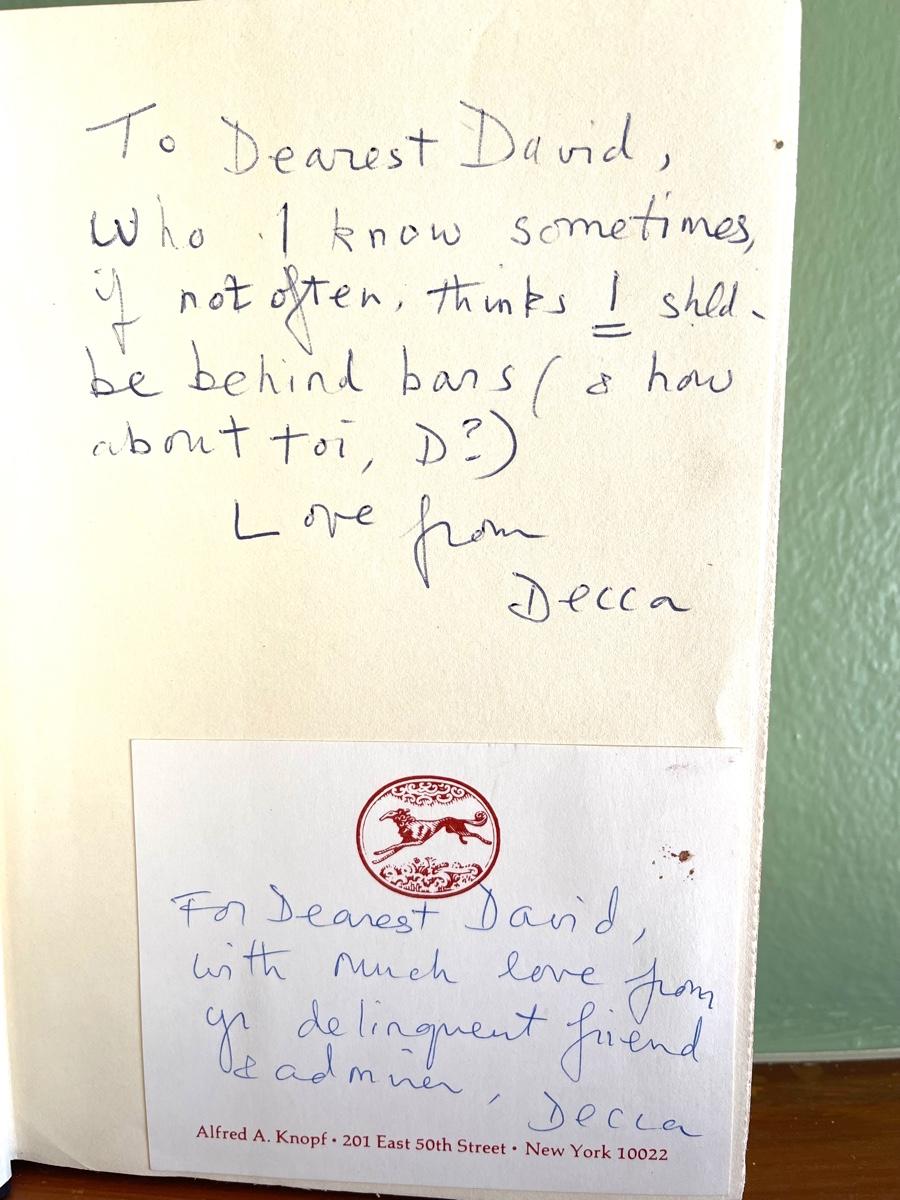 To Dearest David,
Who I know sometimes,
if not often, thinks I shld.
be behind bars (& how
about toi, D?)
Love from
Decca
For Dearest David,
with much love from
yr delinquent friend
& admirer, Decca
Alfred A. Knopf • 201 East 50th Street • New York 10022